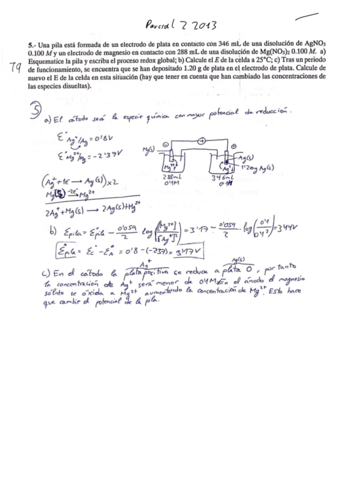 Parcial 2 2013
5.- Una pila está formada de un electrodo de plata en contacto con 346 mL de una disolución de AgNO₃
0.100 M y un electrodo de magnesio en contacto con 288 mL de una disolución de Mg(NO₃)₂ 0.100 M. a)
Esquematice la pila y escriba el proceso redox global; b) Calcule el E de la celda a 25°C; c) Tras un periodo
de funcionamiento, se encuentra que se han depositado 1.20 g de plata en el electrodo de plata. Calcule de
nuevo el E de la celda en esta situación (hay que tener en cuenta que han cambiado las concentraciones de
las especies disueltas).
T9
5
a) El cátodo será la especie química con mayor potencial de reducción.
E°Ag⁺/Ag = 0'8V
E°Mg²⁺/Mg = -2'37V
Mg(s)
Ag(s)
1'20g Ag(s)
Mg²⁺
Ag⁺
288mL
0'1M
346mL
(Ag⁺ + 1e⁻ → Ag(s)) x2
→ Mg²⁺
2Ag⁺ + Mg(s) → 2Ag(s) + Mg²⁺
b) Epila = E°pila - 0'059/2 log [Mg²⁺]/[Ag⁺]² = 3'17 - 0'059/2 · log (0'1/0'1²) = 3'14V
E°pila = E°c - E°A = 0'8 - (-2'37) = 3'17V
Ag⁺
Ag(s)
c) En el cátodo la plata positiva se reduce a plata 0, por tanto
la concentración de Ag⁺ será menor de 0'1M. En el ánodo el magnesio
sólido se oxida a Mg²⁺ aumentando la concentración de Mg²⁺. Esto hace
que cambie el potencial de la pila.